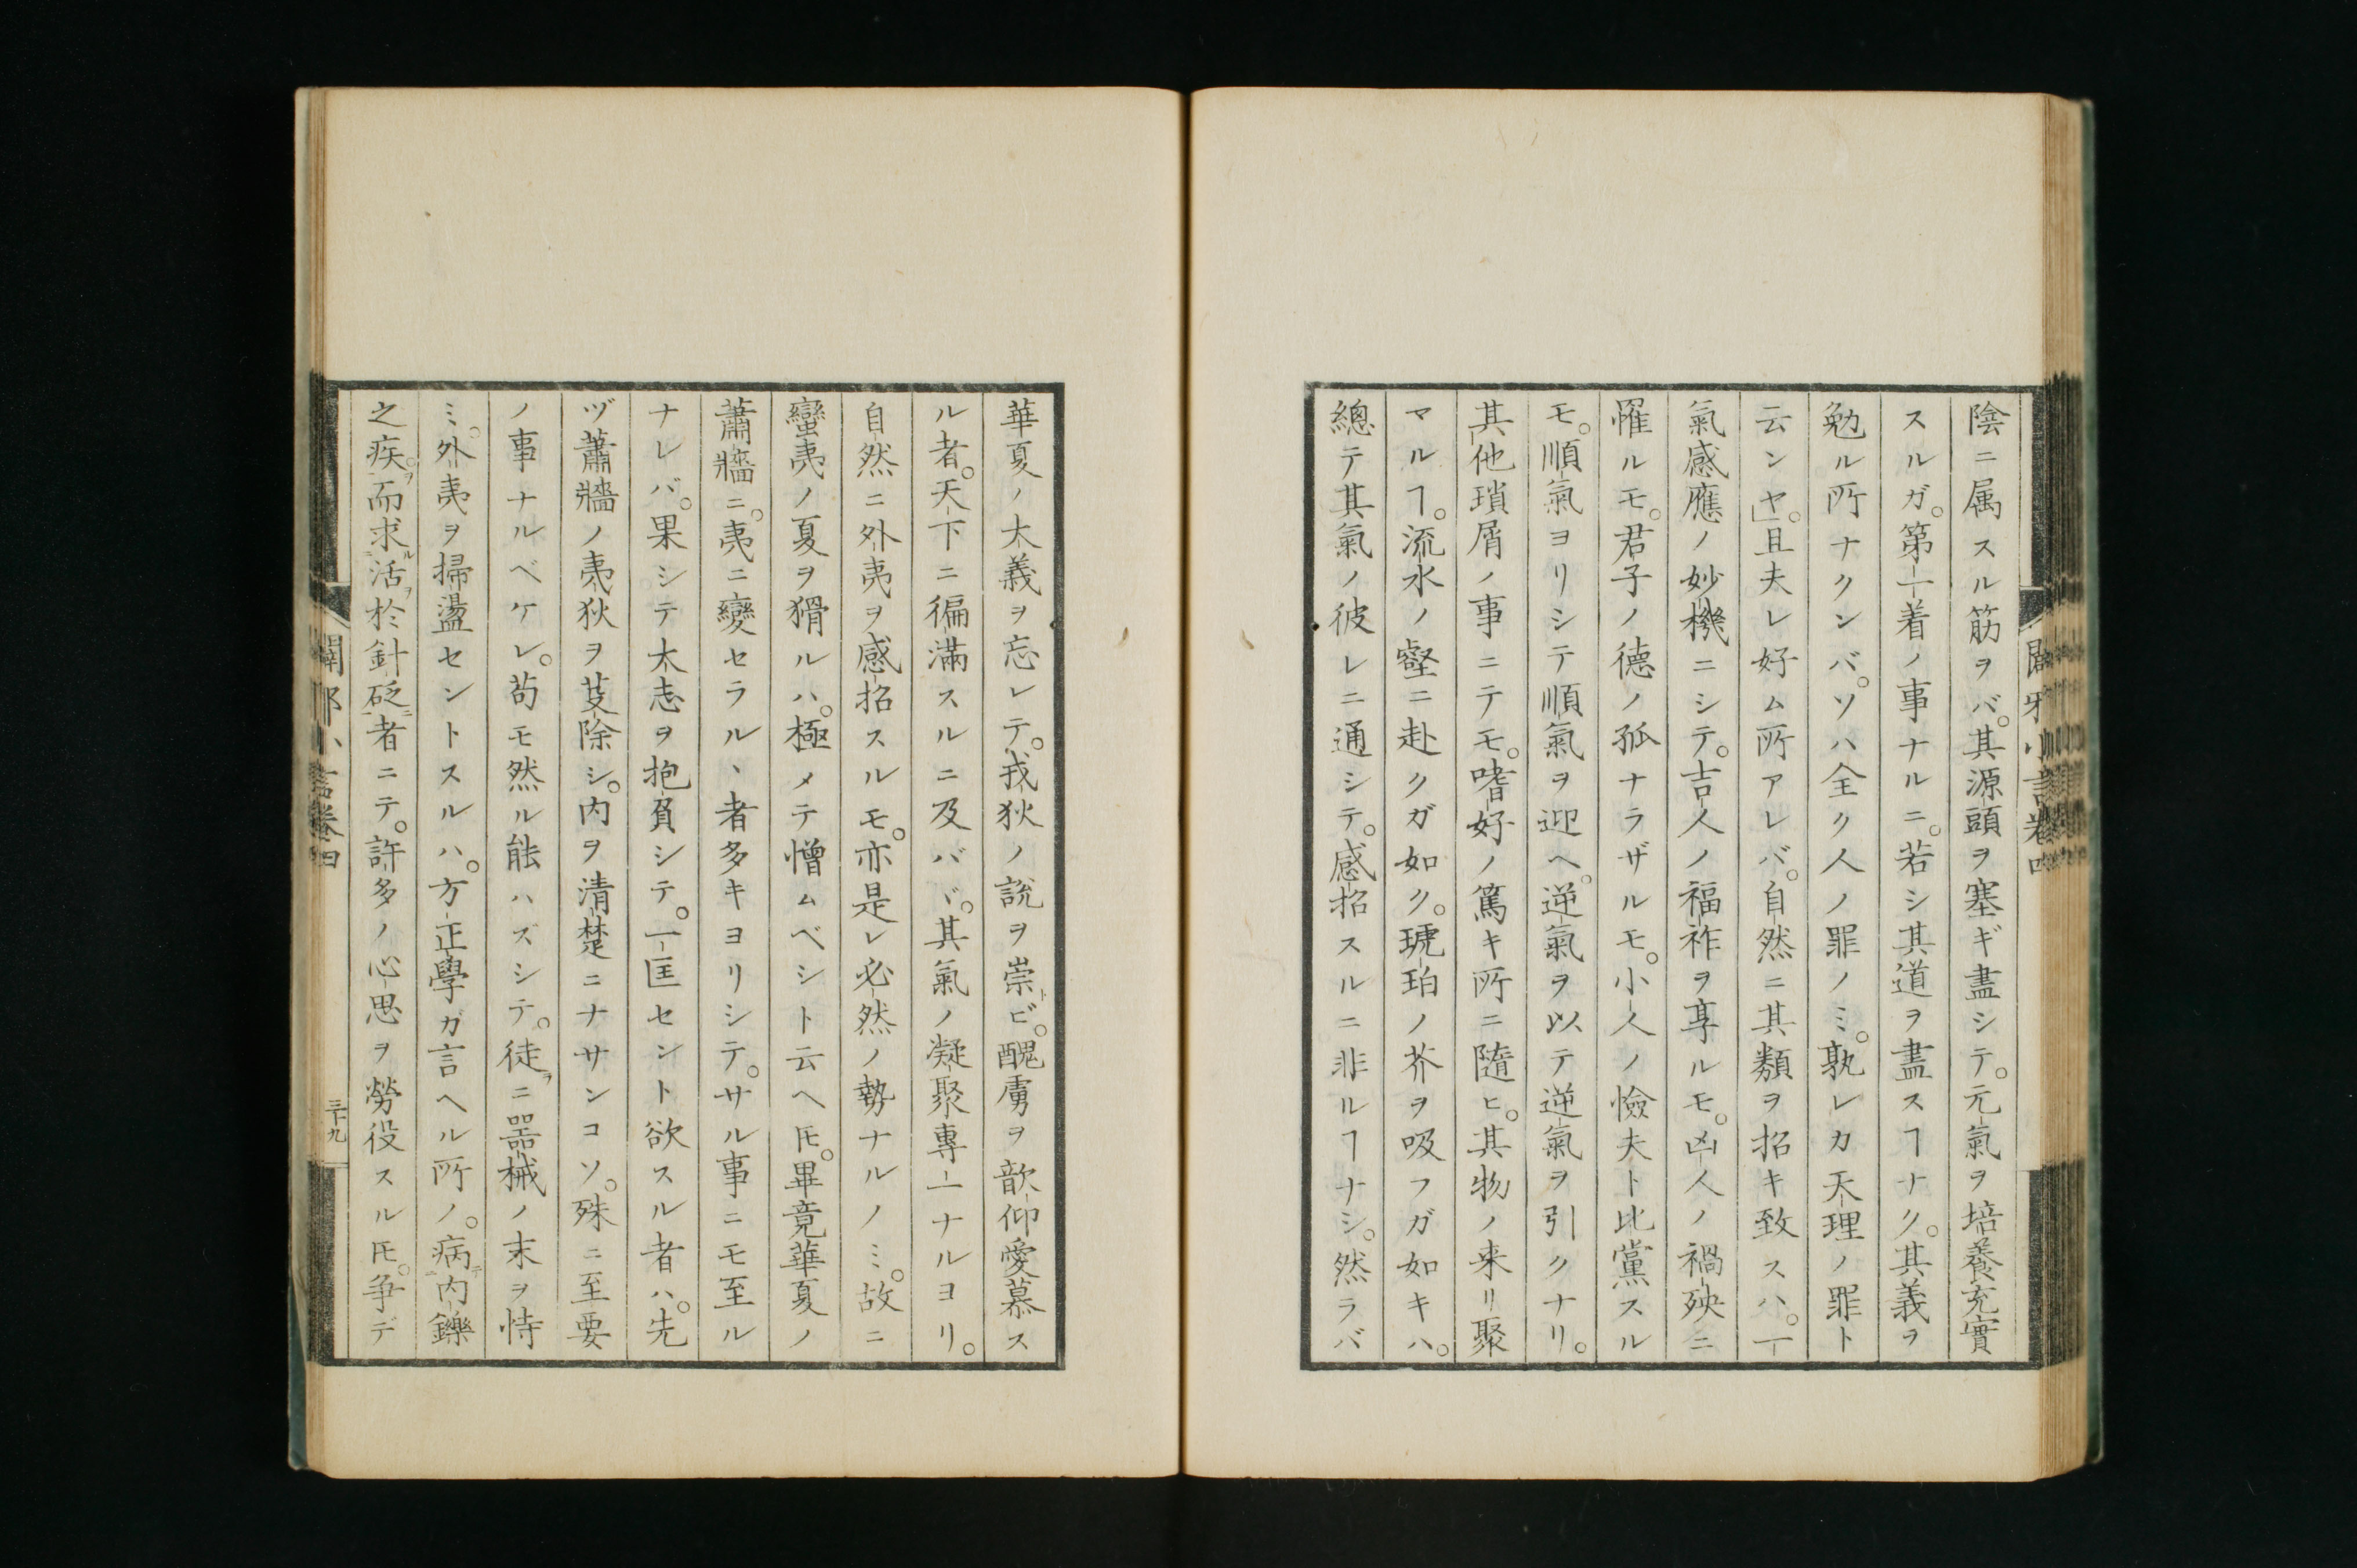 陰ニ属スル筋ヲバ。其源頭ヲ塞ギ盡シテ。元氣ヲ培養充實
スルガ。第一着ノ事ナルニ。若シ其道ヲ盡スヿナク。其義ヲ
勉ル所ナクンバ。ソハ全ク人ノ罪ノミ。孰レカ天理ノ罪ト
云ンヤ。」且夫レ好ム所アレバ。自然ニ其類ヲ招キ致スハ。一
氣感應ノ妙機ニシテ。吉人ノ福祚ヲ享ルモ。凶人ノ禍殃ニ
罹ルモ。君子ノ德ノ孤ナラザルモ。小人ノ憸夫ト比黨スル
モ。順氣ヨリシテ順氣ヲ迎ヘ。逆氣ヲ以テ逆氣ヲ引クナリ。
其他瑣屑ノ事ニテモ。嗜好ノ篤キ所ニ隨ヒ。其物ノ来リ聚
マルヿ。流水ノ壑ニ赴クガ如ク。琥珀ノ芥ヲ吸フガ如キハ。
總テ其氣ノ彼レニ通シテ。感招スルニ非ルヿナシ。然ラバ
闢邪小言卷四
華夏ノ大義ヲ忘レテ。戎狄ノ說ヲ崇ビ。醜虜ヲ歆仰愛慕ス
ル者。天下ニ徧滿スルニ及バヾ。其氣ノ凝聚專一ナルヨリ。
自然ニ外夷ヲ感招スルモ。亦是レ必然ノ勢ナルノミ。故ニ
蠻夷ノ夏ヲ猾ルハ。極メテ憎ムベシト云ヘ𪜈。畢竟華夏ノ
蕭牆ニ。夷ニ變セラルヽ者多キヨリシテ。サル事ニモ至ル
ナレバ。果シテ大志ヲ抱負シテ。一匡セント欲スル者ハ。先
ヅ蕭牆ノ夷狄ヲ芟除シ。内ヲ清楚ニナサンコソ。殊ニ至要
ノ事ナルベケレ。苟モ然ル能ハズシテ。徒ニ器械ノ末ヲ恃
ミ。外夷ヲ掃盪セントスルハ。方正學ガ言ヘル所ノ。病内鑠
之疾。而求活於針砭者ニテ。許多ノ心思ヲ勞役スル𪜈。争デ
闢邪小言卷四
三十九